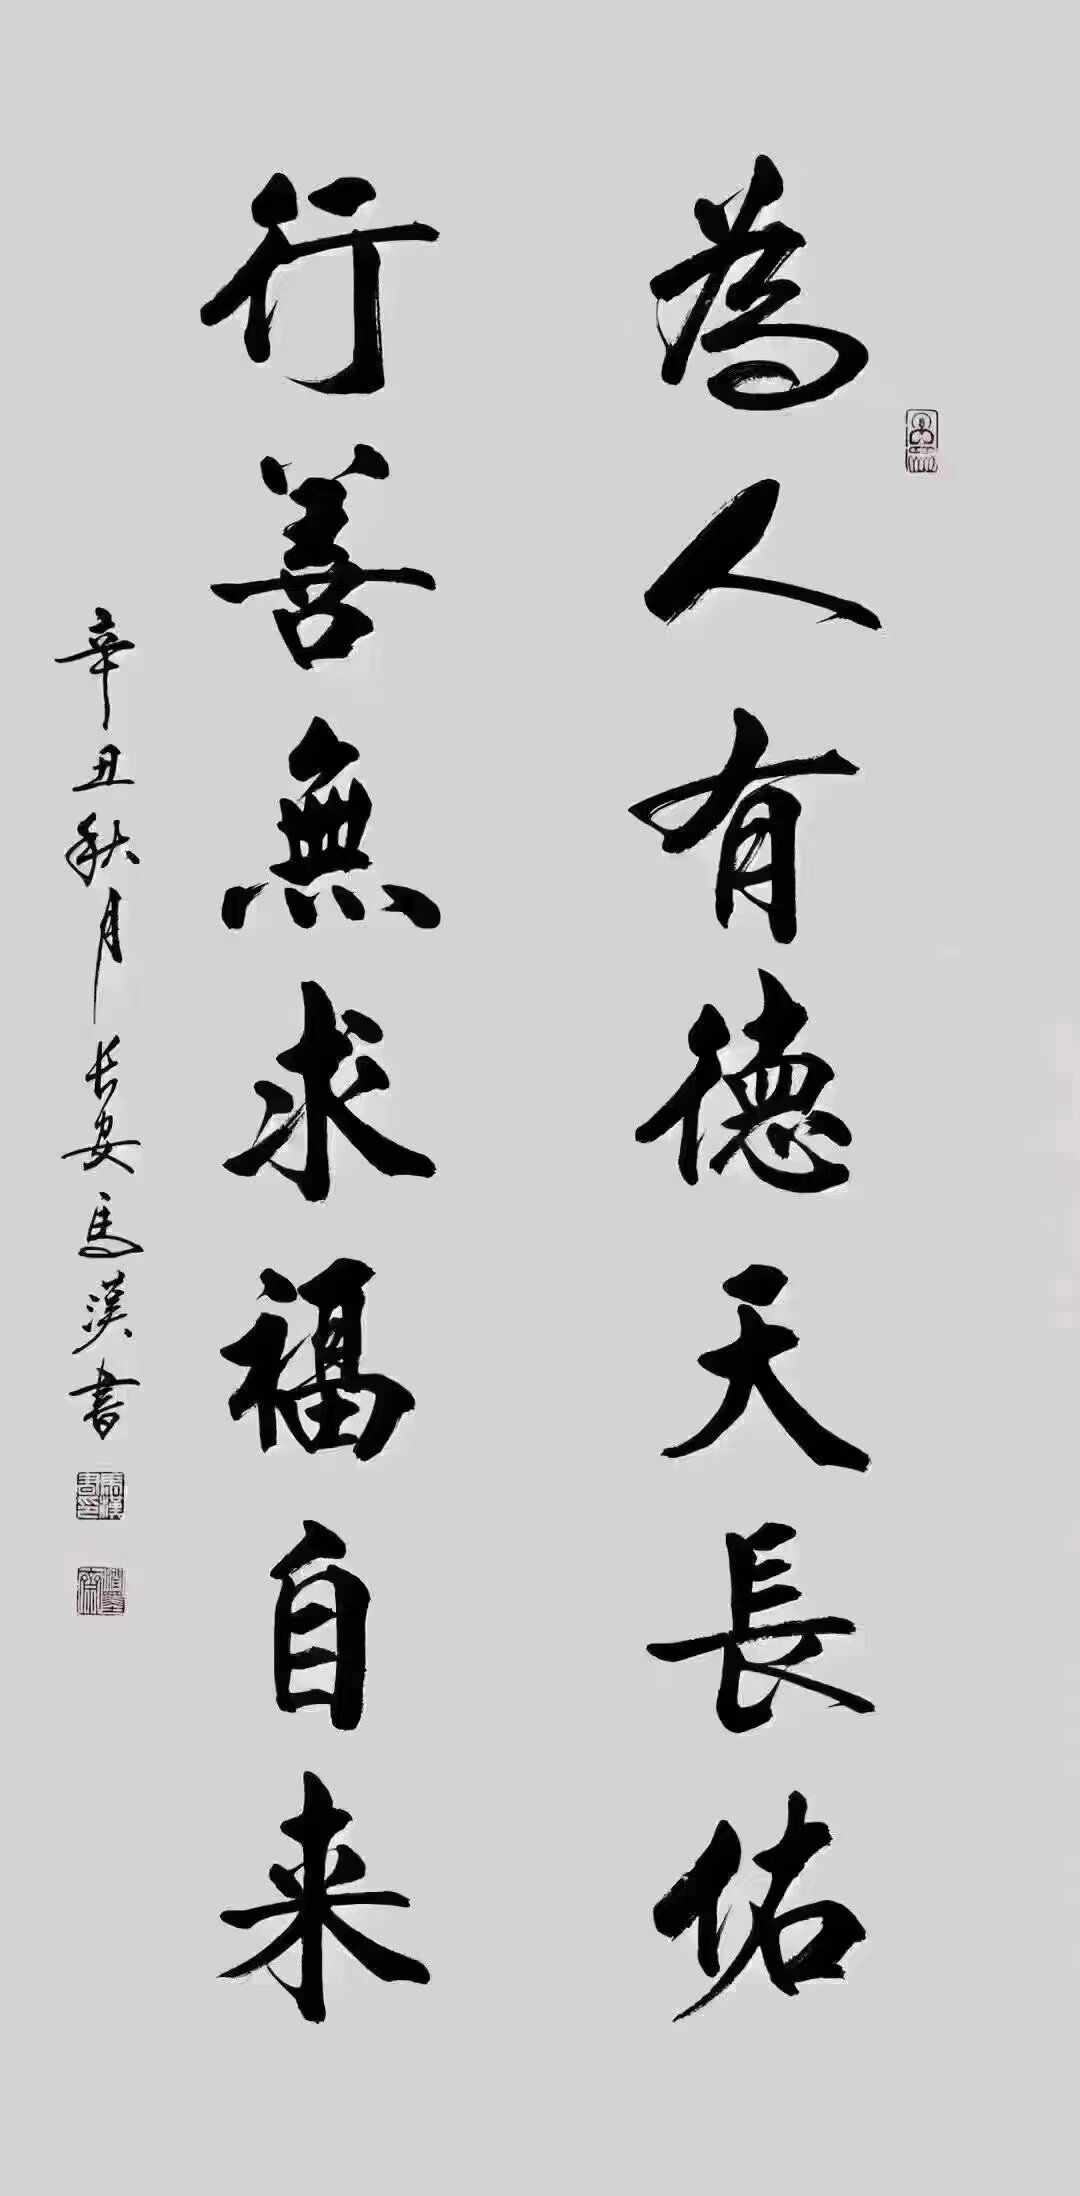 為人有德天長佑
行善無求福自来
辛丑秋月长安馬漢書